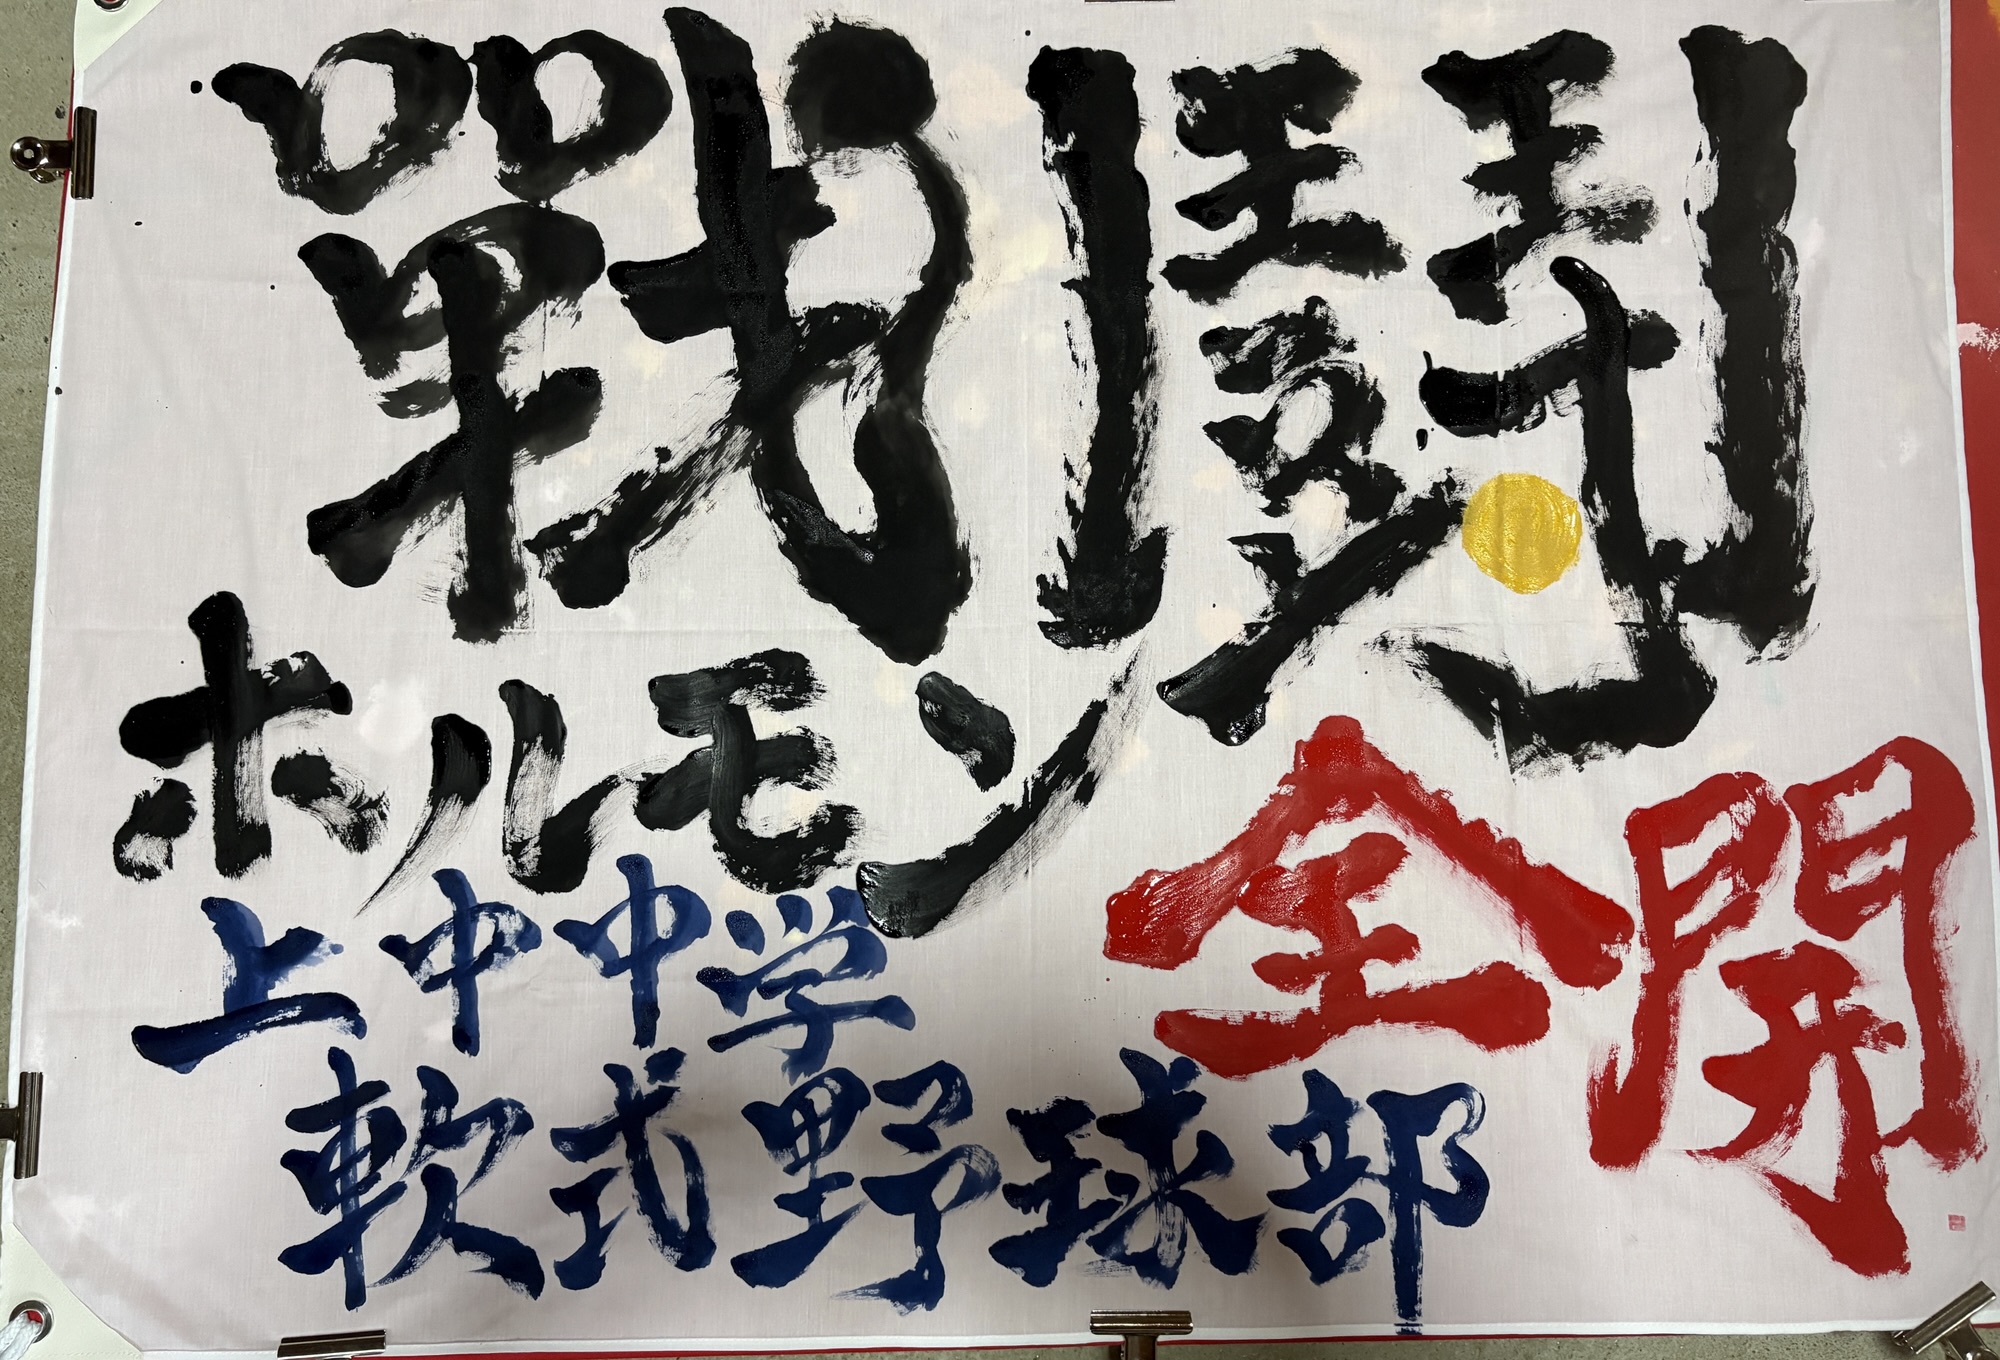 戰鬪
ホルモン
全開
上中中学
軟式野球部